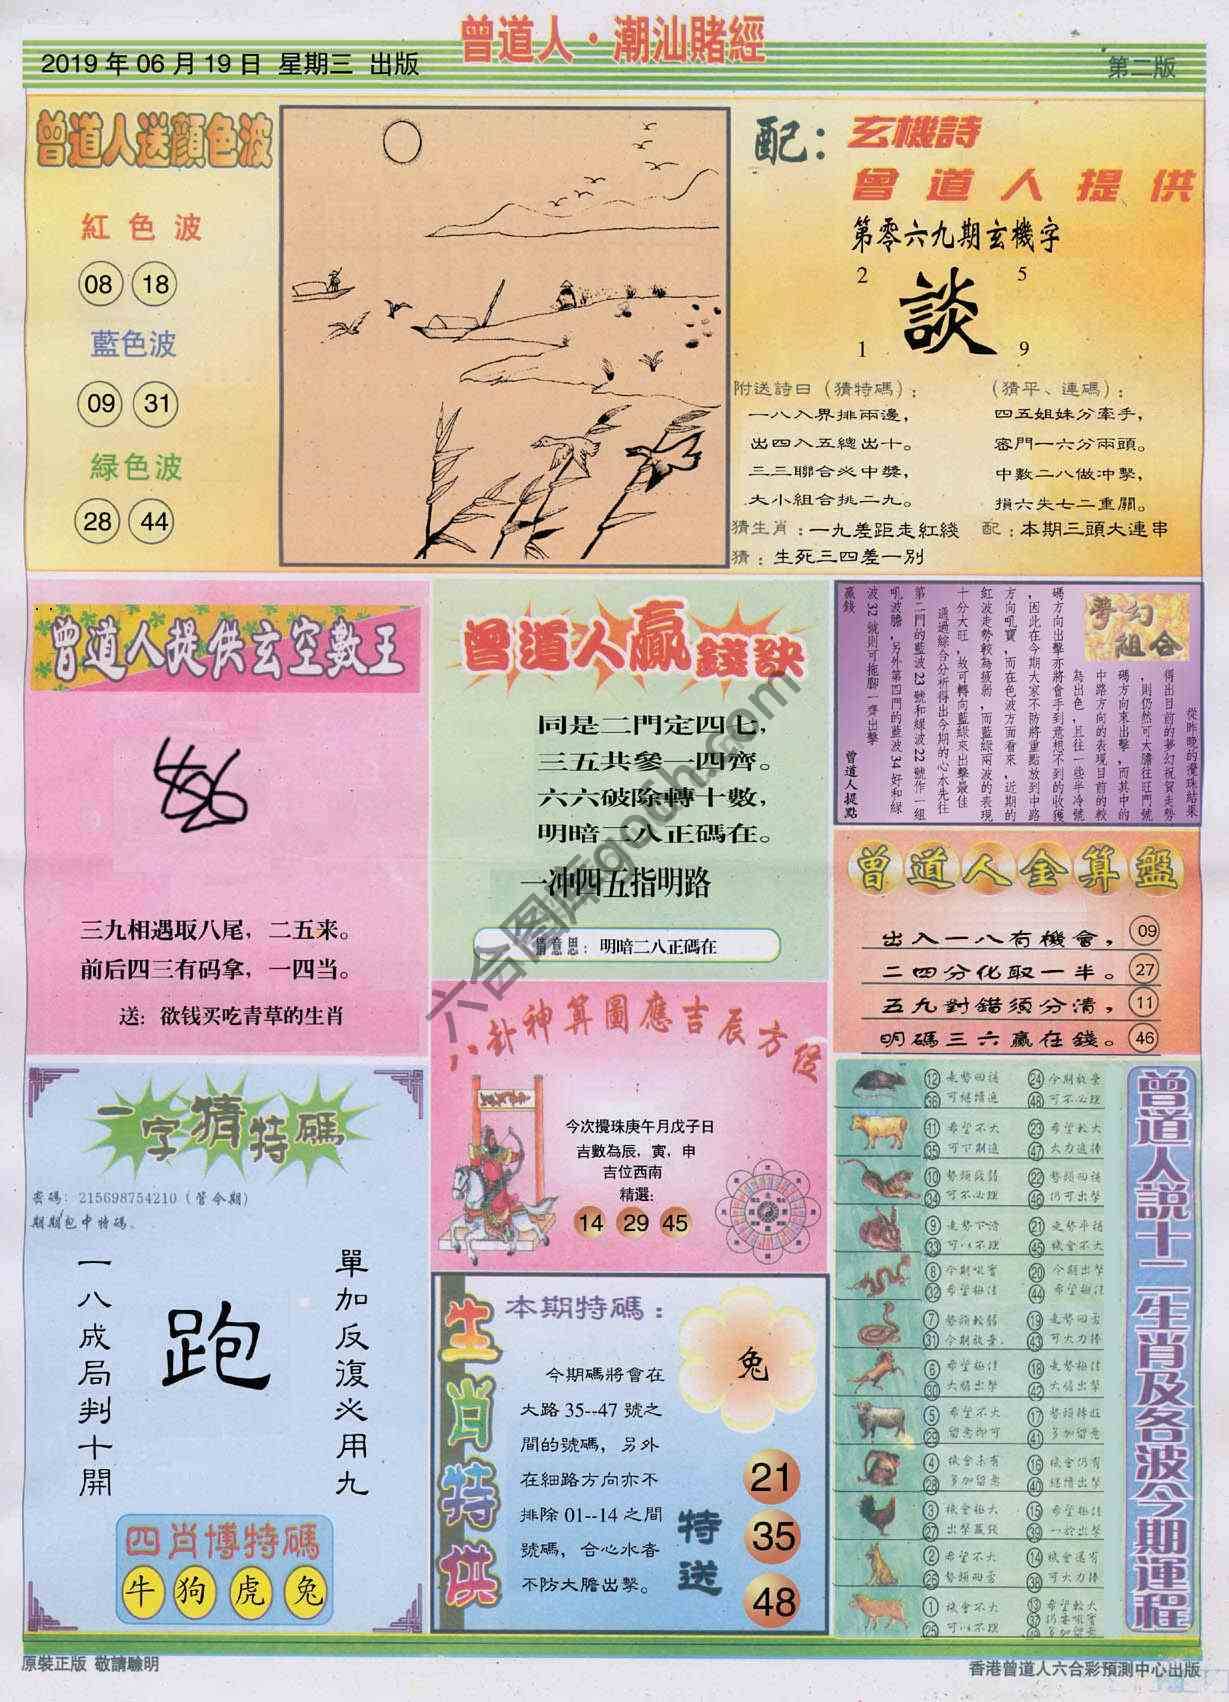 曾道人·潮汕賭經
2019年06月19日 星期三 出版
第二版
曾道人送顏色波
紅色波
08 18
藍色波
09 31
緑色波
28 44
配：玄機詩
曾道人提供
第零六九期玄機字
2 5
談
1 9
附送詩曰（猜特碼）：
一八入界排兩邊，
出四入五總出十。
三三聯合必中獎，
大小組合挑二九。
（猜平、連碼）：
四五姐妹分牽手，
密門一六分兩頭。
中數二八做冲擊，
損六失七二重關。
猜生肖：一九差距走紅綫
配：本期三頭大連串
猜：生死三四差一别
曾道人提供玄空數王
三九相遇取八尾，二五来。
前后四三有码拿，一四当。
送：欲钱买吃青草的生肖
曾道人贏錢訣
同是二門定四七，
三五共參一四齊。
六六破除轉十數，
明暗二八正碼在。
一冲四五指明路
猜意思：明暗二八正碼在
夢幻組合
從昨晚的攪珠結果
得出目前的夢幻祝賀走勢
，則仍然可大膽往旺門號
碼方向來出擊，而其中的
中路方向的表現目前的較
為出色，且往一些半冷號
碼方向出擊亦將會手到意想不到的收獲
，因此在今期大家不防將重點放到中路
方向吼寶，而在色波方面看來，近期的
紅波走勢較為疲弱，而藍綠兩波的表現
十分大旺，故可轉向藍綠來出擊最佳
通過綜合分析得出今期的心水先往
第二門的藍波23號和綠波22號作一組
吼波膽，另外第四門的藍波34好和綠
波32號則可拖腳一齊出擊
贏錢
曾道人提點
曾道人金算盤
出入一八有機會， 09
二四分化取一半。 27
五九對錯須分清， 11
明碼三六贏在錢。 46
八卦神算圖應吉辰方位
今次攪珠庚午月戊子日
吉數為辰，寅，申
吉位西南
精選：
14 29 45
一字猜特碼
密碼：215698754210（管令期）
期期包中特碼。
一八成局判十開
跑
單加反復必用九
四肖博特碼
牛 狗 虎 兔
生肖特供
本期特碼：
兔
今期碼將會在
大路35--47號之
間的號碼，另外
在細路方向亦不
排除01--14之間
號碼，合心水者
不防大膽出擊。
特送
21
35
48
曾道人説十二生肖及各波今期運程
12 36 走勢回補 可繼續追
24 48 今期放量 可不必理
11 35 希望不大 可下期追
23 47 希望較大 大力追捧
10 34 勢頭疲弱 可不必理
22 46 勢頭回補 仍可出擊
9 33 走勢下滑 可以不理
21 45 走勢平穩 機會不大
8 32 今期吼寶 希望極佳
20 44 今期出擊 希望極佳
7 31 勢頭較弱 今期放量
19 43 走勢回落 可大力捧
6 30 希望極佳 大膽出擊
18 42 走勢極佳 大膽出擊
5 29 希望不大 留意即可
17 41 勢頭轉旺 多加留意
4 28 機會未有 多加留意
16 40 機會仍有 繼續出擊
3 27 機會極大 出擊贏錢
15 39 希望極佳 一於出擊
2 26 希望不大 勢頭回落
14 38 機會還有 可大力捧
1 25 機會不大 可以不理
13 37 希望較大 仍要吼寶 多加留意
原裝正版 敬請驗明
香港曾道人六合彩預測中心出版
六合图库gotch.com